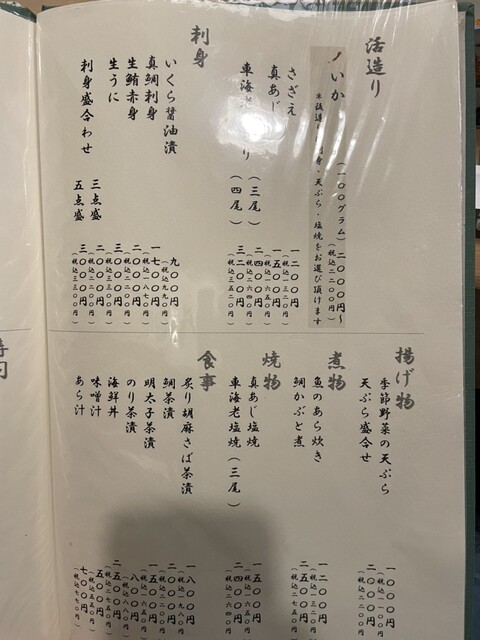 活造り
いか (一〇〇グラム) 二〇〇〇円～
(税込二二〇〇円)
刺身・天ぷら・塩焼をお選び頂けます
さざえ 一二〇〇円
(税込一三二〇円)
真あじ 一五〇〇円
(税込一六五〇円)
車海老 り (三尾) 二四〇〇円
(税込二六四〇円)
(四尾) 三二〇〇円
(税込三五二〇円)
刺身
いくら醤油漬 九〇〇円
(税込九九〇円)
真鯛刺身 一七〇〇円
(税込一八七〇円)
生鮪赤身 二〇〇〇円
(税込二二〇〇円)
生うに 三〇〇〇円
(税込三三〇〇円)
刺身盛合わせ 三点盛 二〇〇〇円
(税込二二〇〇円)
五点盛 三〇〇〇円
(税込三三〇〇円)
揚げ物
季節野菜の天ぷら 一〇〇〇円
(税込一一〇〇円)
天ぷら盛合せ 二〇〇〇円
(税込二二〇〇円)
煮物
魚のあら炊き 一二〇〇円
(税込一三二〇円)
鯛かぶと煮 二五〇〇円
(税込二七五〇円)
焼物
真あじ塩焼 一五〇〇円
(税込一六五〇円)
車海老塩焼(三尾) 二四〇〇円
(税込二六四〇円)
食事
炙り胡麻さば茶漬 一八〇〇円
(税込一九八〇円)
鯛茶漬 二〇〇〇円
(税込二二〇〇円)
明太子茶漬 一五〇〇円
(税込一六五〇円)
のり茶漬 八〇〇円
(税込八八〇円)
海鮮丼 二五〇〇円
(税込二七五〇円)
味噌汁 五〇〇円
(税込五五〇円)
あら汁 七〇〇円
(税込七七〇円)